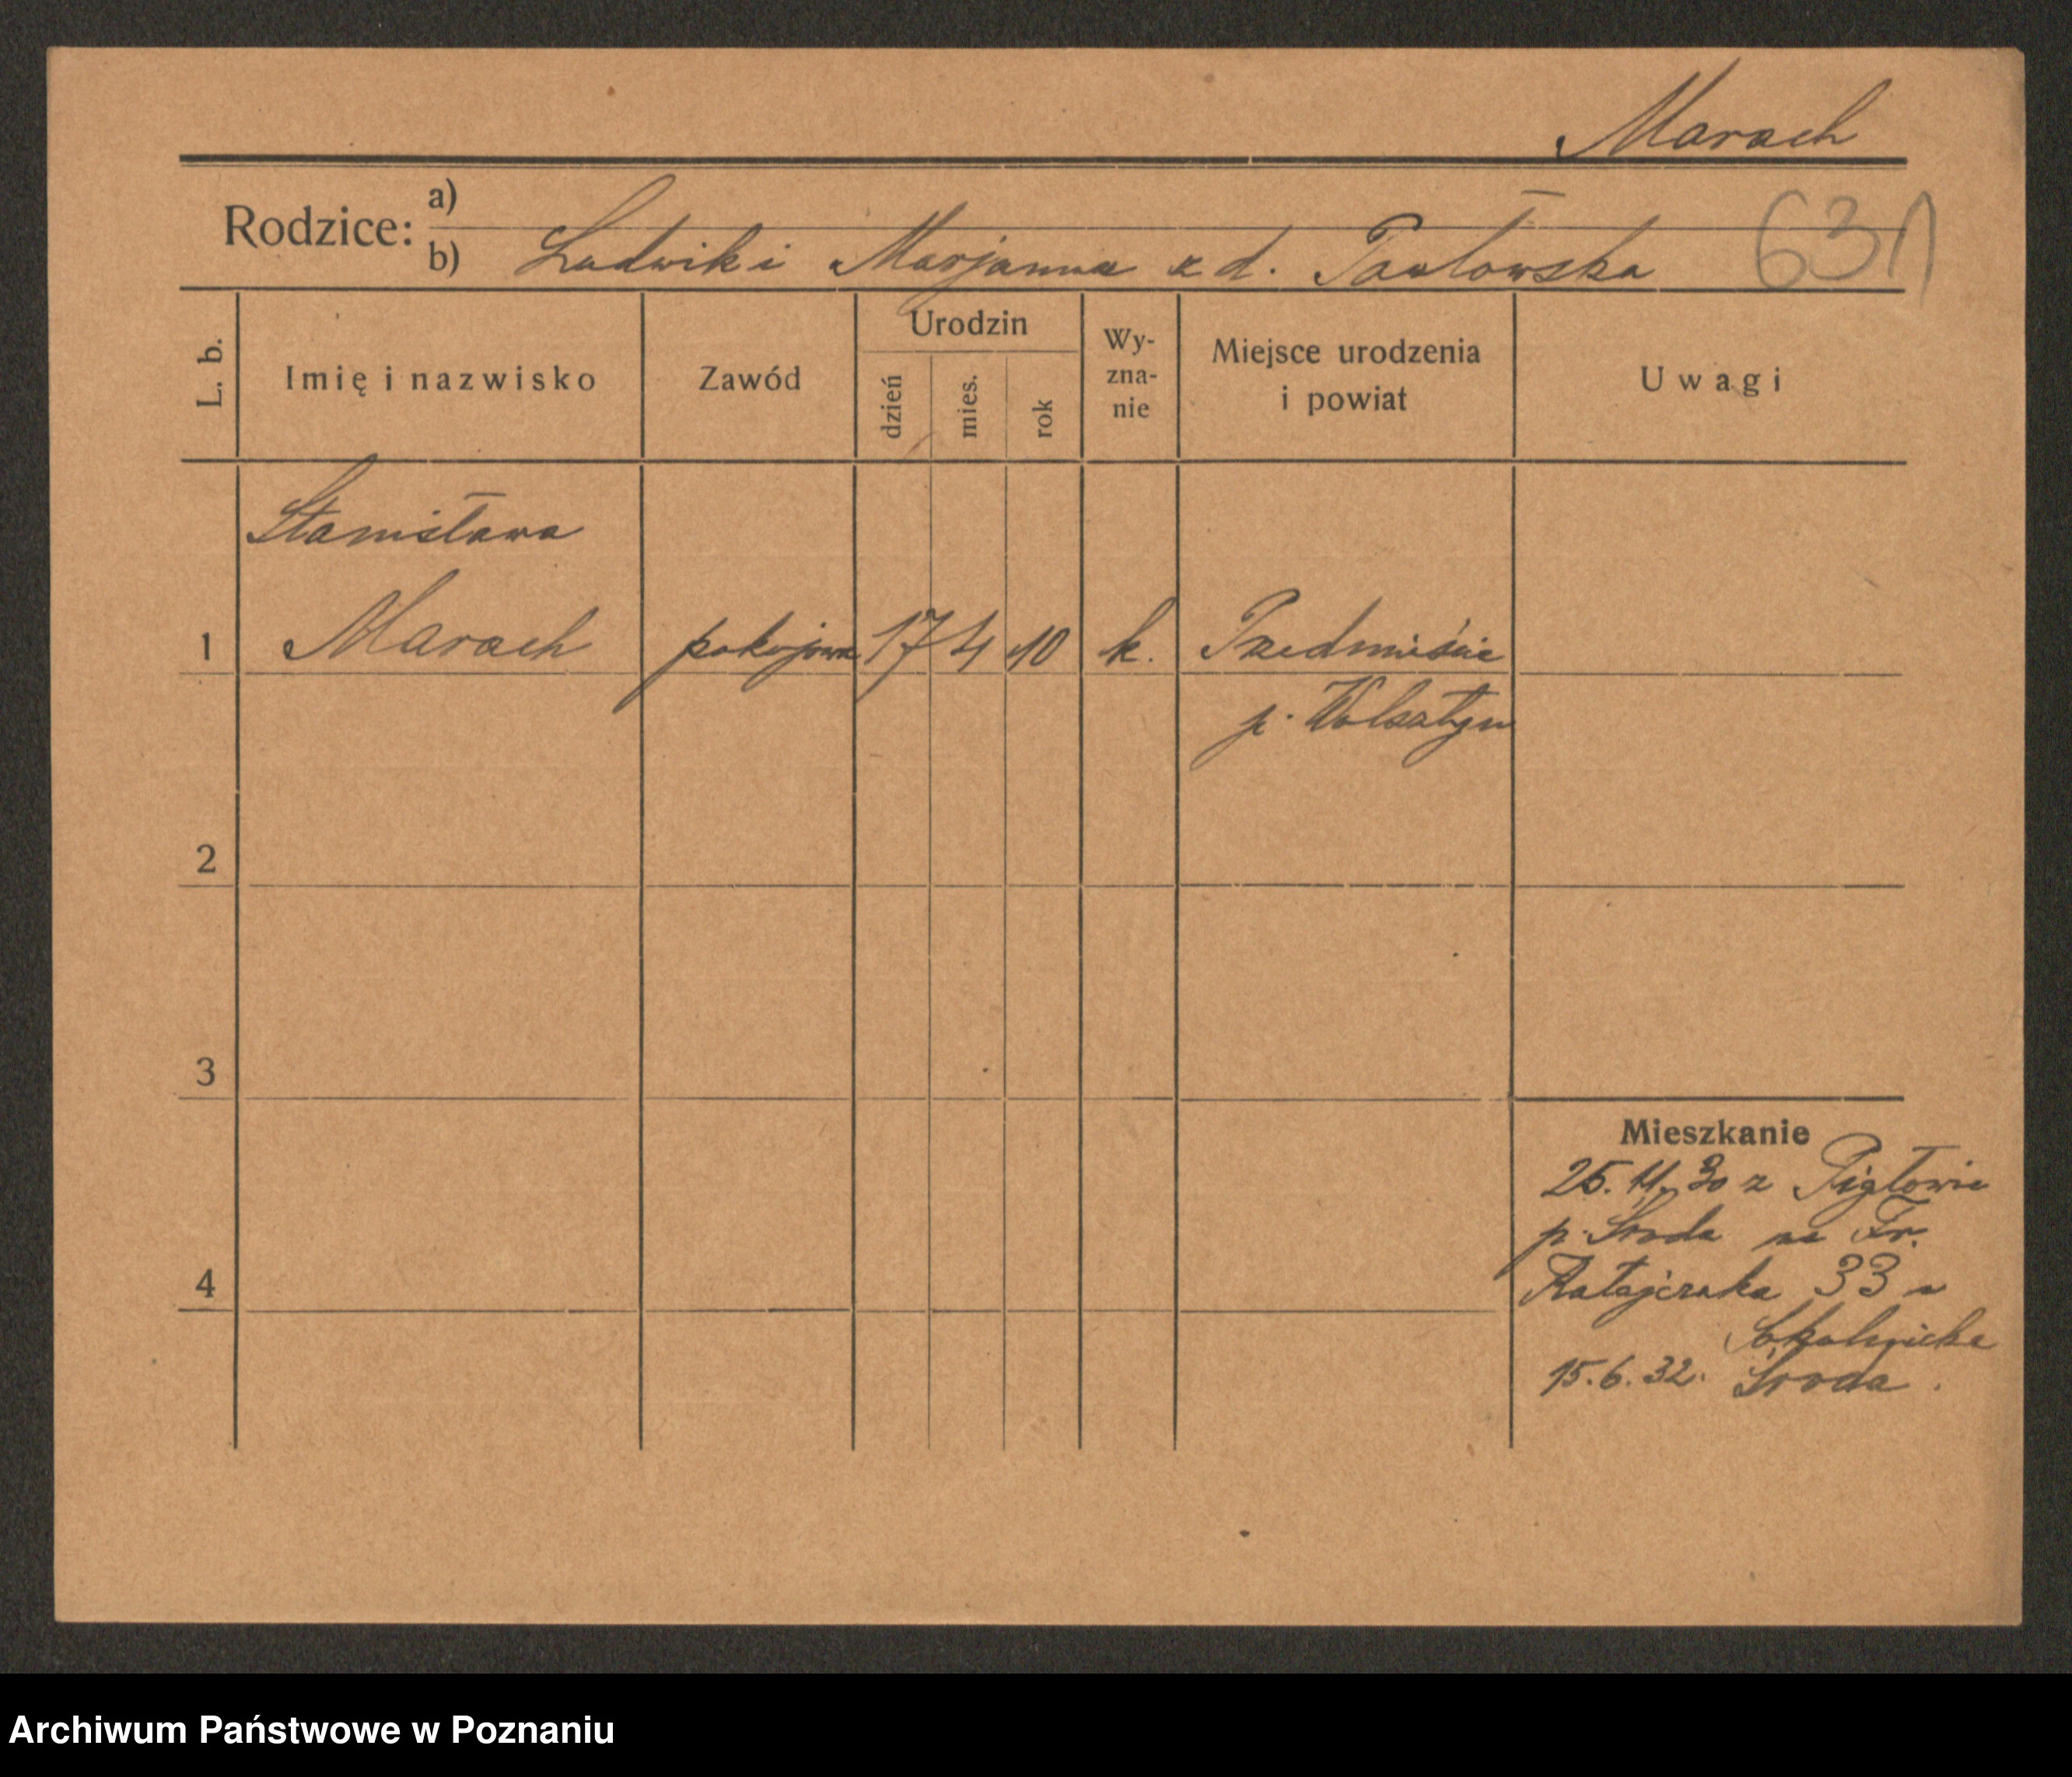 Marach
Rodzice: a)
b) Ludwik i Marjanna z d. Pawłowska
63n
L. b.
Imię i nazwisko
Zawód
Urodzin
dzień
mies.
rok
Wy-
zna-
nie
Miejsce urodzenia
i powiat
Uwagi
Stanisława
1 Marach pokojowa 17 4 10 k. Przedmieście
p. Wolsztyn
2
3
4
Mieszkanie
25. 11. 30 z Pigłowic
p. Środa na Fr.
Ratajczaka 33 u
15.6.32. Środa.
Archiwum Państwowe w Poznaniu